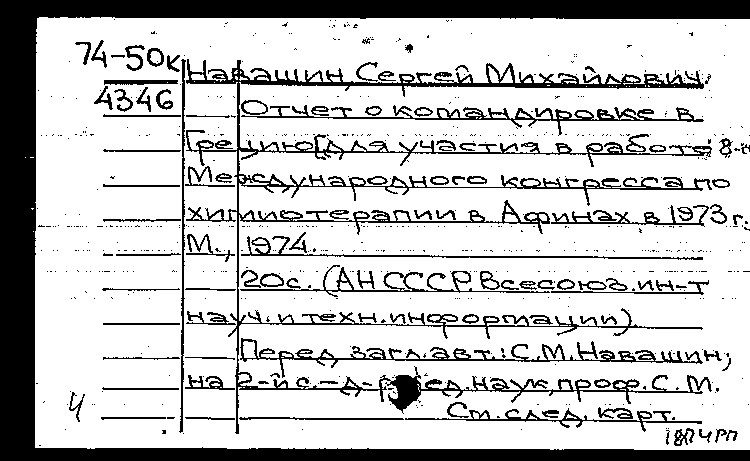 74-50к
Навашин, Сергей Михайлович.
4346
Отчет о командировке в
Грецию [для участия в работе 8-н
Международного конгресса по
химиотерапии в Афинах в 1973 г.
М., 1974.
20с. (АН СССР. Всесоюз. ин-т
науч. и техн. информации).
Перед загл. авт.: С.М. Навашин;
на 2-й с. - д-р мед. наук, проф. С.М.
Ч
См. след. карт.